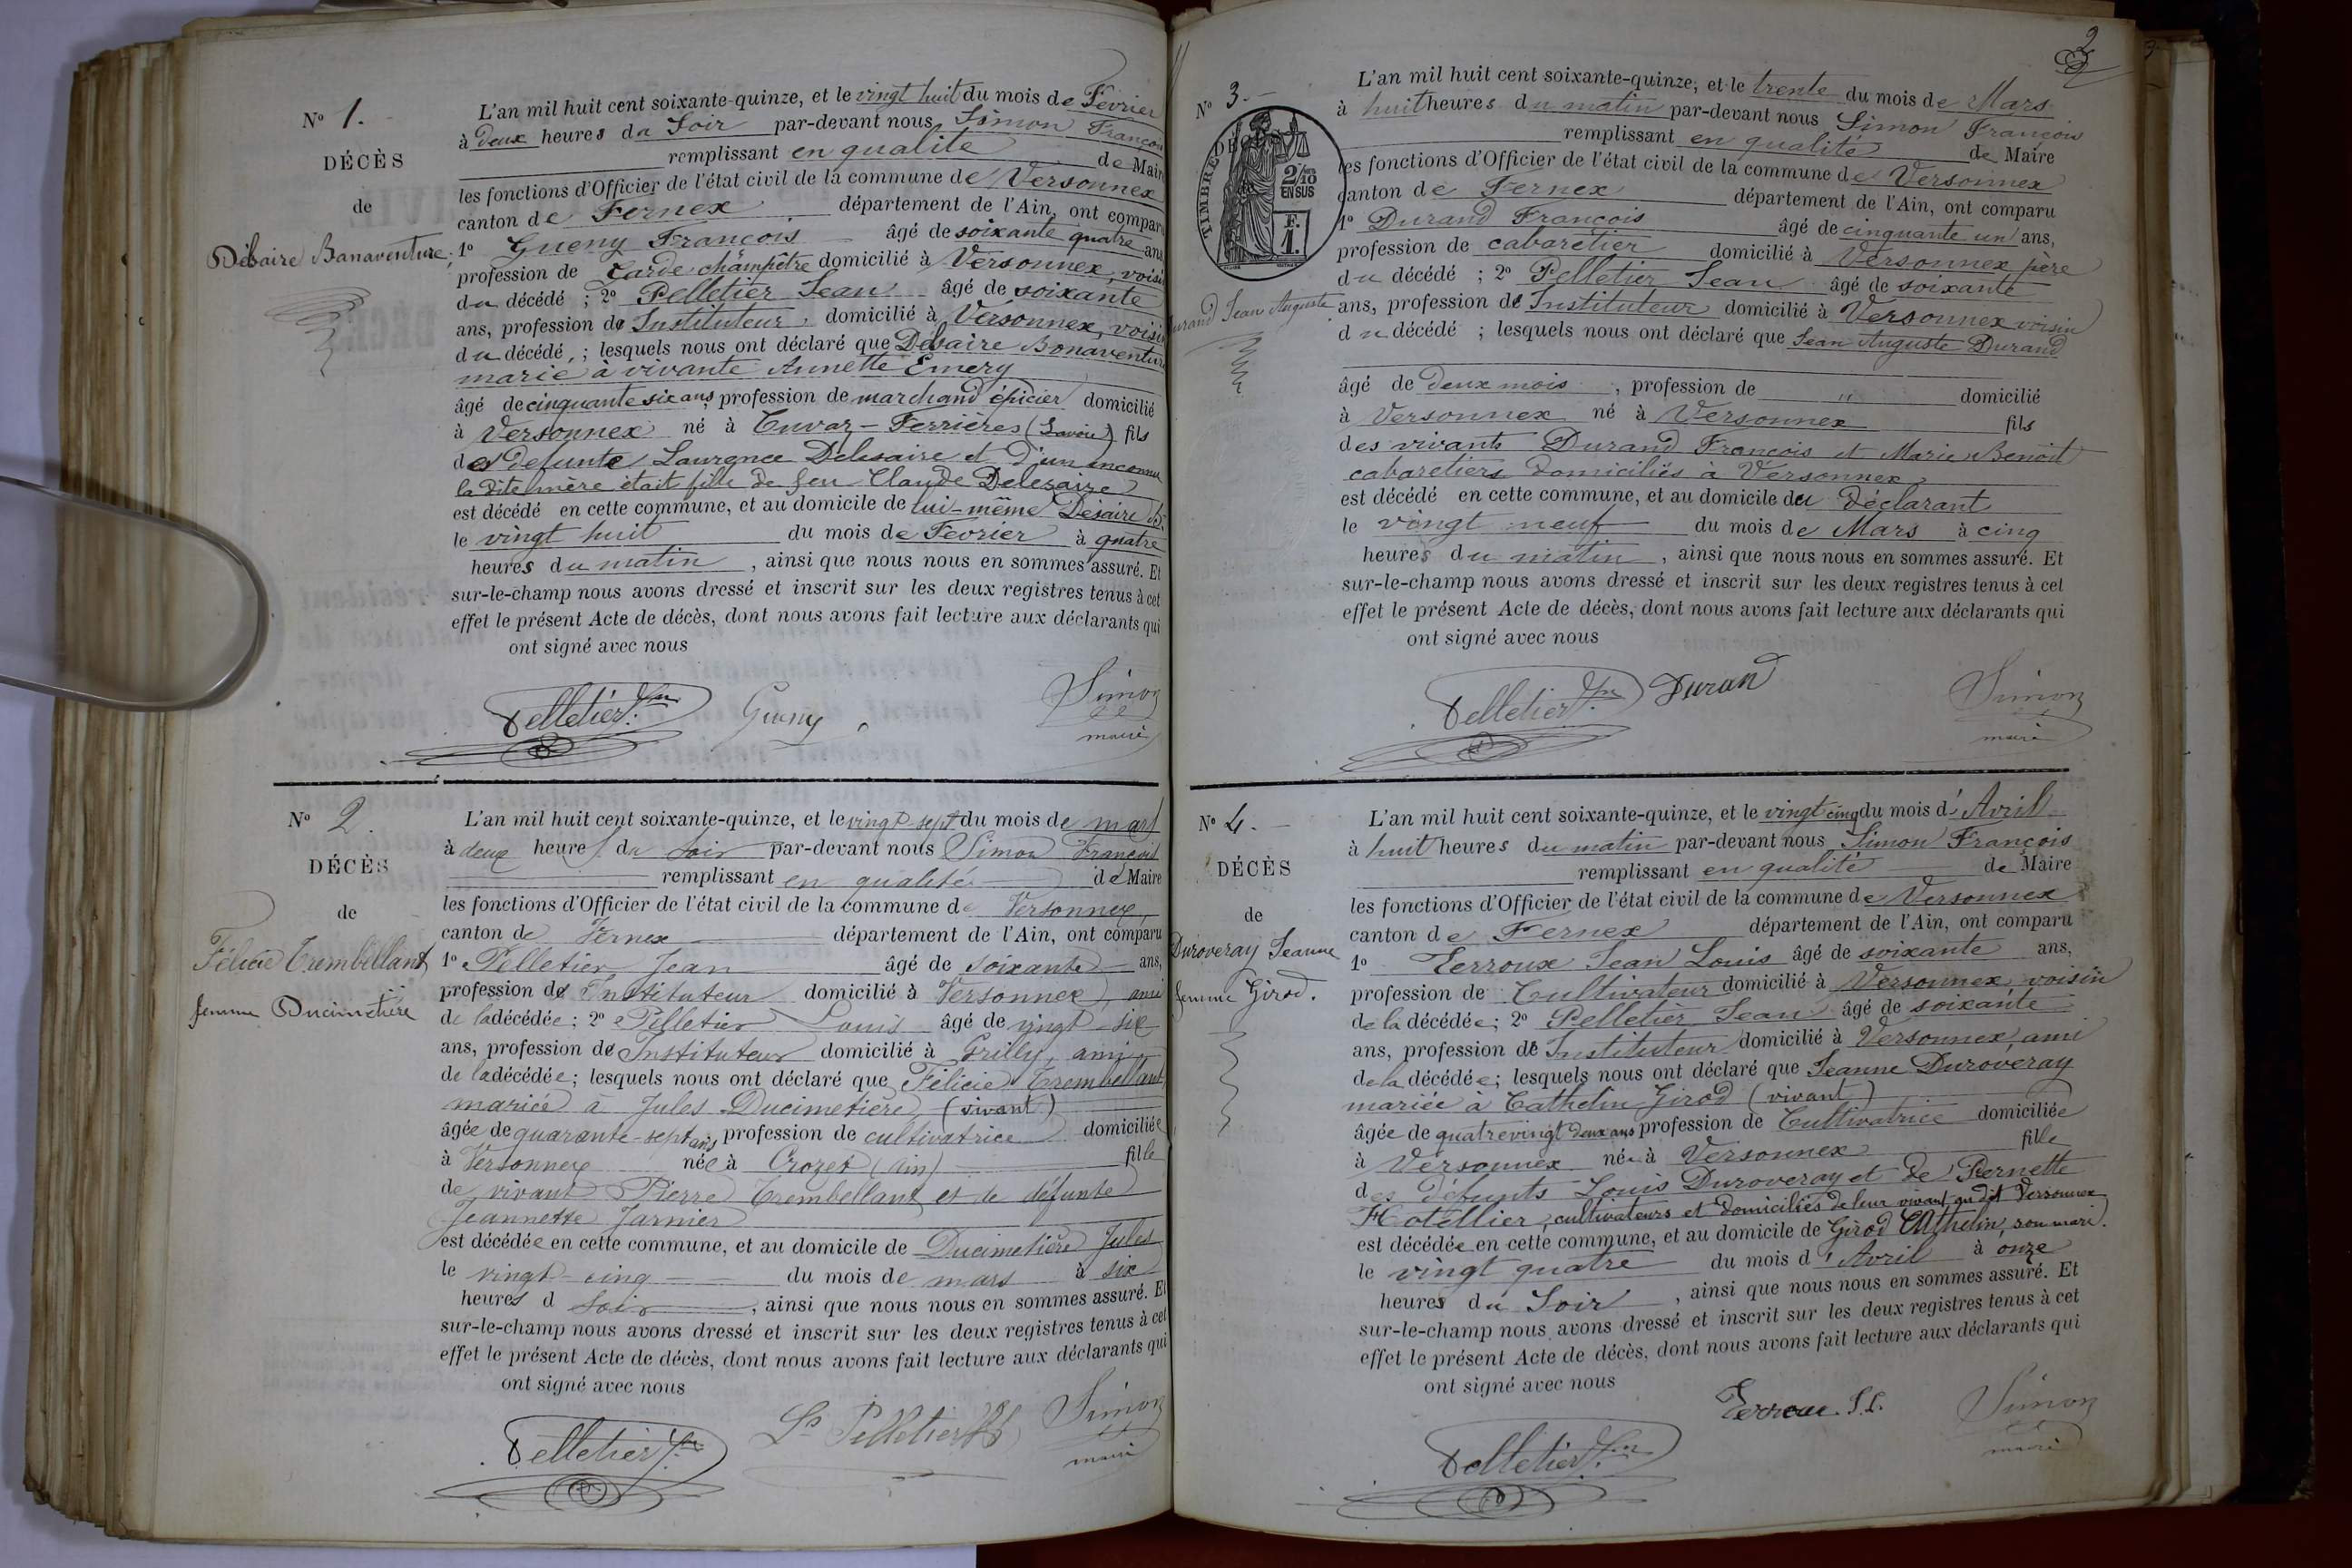 N° 1.
DÉCÈS
de
Debaire Banaventure
L'an mil huit cent soixante-quinze, et le vingt huit du mois de Février
à deux heures du Soir par-devant nous Simon François
remplissant en qualité de Maire
les fonctions d'Officier de l'état civil de la commune de Versonnex
canton de Fernex département de l'Ain, ont comparu
1° Gueny François âgé de soixante quatre ans,
profession de Garde champêtre domicilié à Versonnex, voisin
du décédé ; 2° Pelletier Jean âgé de soixante
ans, profession de Instituteur, domicilié à Versonnex, voisin
du décédé, ; lesquels nous ont déclaré que Debaire Bonaventure
marié à vivante Annette Emery
âgé de cinquante six ans, profession de marchand épicier domicilié
à Versonnex né à Cuvaz-Ferrières (Savoie) fils
des defunte Laurence Delesaire et d'un inconnu
la dite mère était fille de feu Claude Delesaire
est décédé en cette commune, et au domicile de lui-même Desaire B.
le vingt huit du mois de Février à quatre
heures du matin, ainsi que nous nous en sommes assuré. Et
sur-le-champ nous avons dressé et inscrit sur les deux registres tenus à cet
effet le présent Acte de décès, dont nous avons fait lecture aux déclarants qui
ont signé avec nous
Pelletier Jn Gueny Simon
maire
N° 2.
DÉCÈS
de
Félicie Trembellant
femme Ducimetière
L'an mil huit cent soixante-quinze, et le vingt-sept du mois de mars
à deux heures du soir par-devant nous Simon François
remplissant en qualité de Maire
les fonctions d'Officier de l'état civil de la commune de Versonnex,
canton de Fernex département de l'Ain, ont comparu
1° Pelletier Jean âgé de soixante ans,
profession de Instituteur domicilié à Versonnex, ami
de la décédée; 2° Pelletier Louis âgé de vingt-six
ans, profession de Instituteur domicilié à Grilly, ami
de la décédée; lesquels nous ont déclaré que Félicie Trembellant
mariée à Jules Ducimetière (vivant)
âgée de quarante-sept ans, profession de cultivatrice domiciliée
à Versonnex née à Crozet (Ain) fille
de vivant Pierre Trembellant et de défunte
Jeannette Jarnier
est décédée en cette commune, et au domicile de Ducimetière Jules
le vingt-cinq du mois de mars à six
heures d soir, ainsi que nous nous en sommes assuré. Et
sur-le-champ nous avons dressé et inscrit sur les deux registres tenus à cet
effet le présent Acte de décès, dont nous avons fait lecture aux déclarants qui
ont signé avec nous
Pelletier Jn Ls Pelletier Simon
maire
2
N° 3.
DÉC
TIMBRE
2/10
EN SUS
F.
1.
Durand Jean Auguste
L'an mil huit cent soixante-quinze, et le trente du mois de Mars
à huit heures du matin par-devant nous Simon François
remplissant en qualité de Maire
les fonctions d'Officier de l'état civil de la commune de Versonnex
canton de Fernex département de l'Ain, ont comparu
1° Durand François âgé de cinquante un ans,
profession de cabaretier domicilié à Versonnex, père
du décédé ; 2° Pelletier Jean âgé de soixante
ans, profession de Instituteur domicilié à Versonnex voisin
du décédé ; lesquels nous ont déclaré que Jean Auguste Durand
âgé de deux mois, profession de " domicilié
à Versonnex né à Versonnex fils
des vivants Durand François et Marie Benoit
cabaretiers domiciliés à Versonnex
est décédé en cette commune, et au domicile du Déclarant
le vingt neuf du mois de Mars à cinq
heures du matin, ainsi que nous nous en sommes assuré. Et
sur-le-champ nous avons dressé et inscrit sur les deux registres tenus à cet
effet le présent Acte de décès, dont nous avons fait lecture aux déclarants qui
ont signé avec nous
Pelletier Jn Duran Simon
maire
N° 4.
DÉCÈS
de
Duroveray Jeanne
femme Girod.
L'an mil huit cent soixante-quinze, et le vingt cinq du mois d'Avril
à huit heures du matin par-devant nous Simon François
remplissant en qualité de Maire
les fonctions d'Officier de l'état civil de la commune de Versonnex
canton de Fernex département de l'Ain, ont comparu
1° Terroux Jean Louis âgé de soixante ans,
profession de Cultivateur domicilié à Versonnex, voisin
de la décédée; 2° Pelletier Jean âgé de soixante
ans, profession de Instituteur domicilié à Versonnex, ami
de la décédée; lesquels nous ont déclaré que Jeanne Duroveray
mariée à Cathelin Girod (vivant)
âgée de quatrevingt deux ans profession de Cultivatrice domiciliée
à Versonnex née à Versonnex fille
des défunts Louis Duroveray et de Pernette
Hotellier, cultivateurs et domiciliés de leur vivant au dit Versonnex
est décédée en cette commune, et au domicile de Girod Cathelin, son mari.
le vingt quatre du mois d'Avril à onze
heures du Soir, ainsi que nous nous en sommes assuré. Et
sur-le-champ nous avons dressé et inscrit sur les deux registres tenus à cet
effet le présent Acte de décès, dont nous avons fait lecture aux déclarants qui
ont signé avec nous
Terroux J.L. Simon
maire
Pelletier Jn